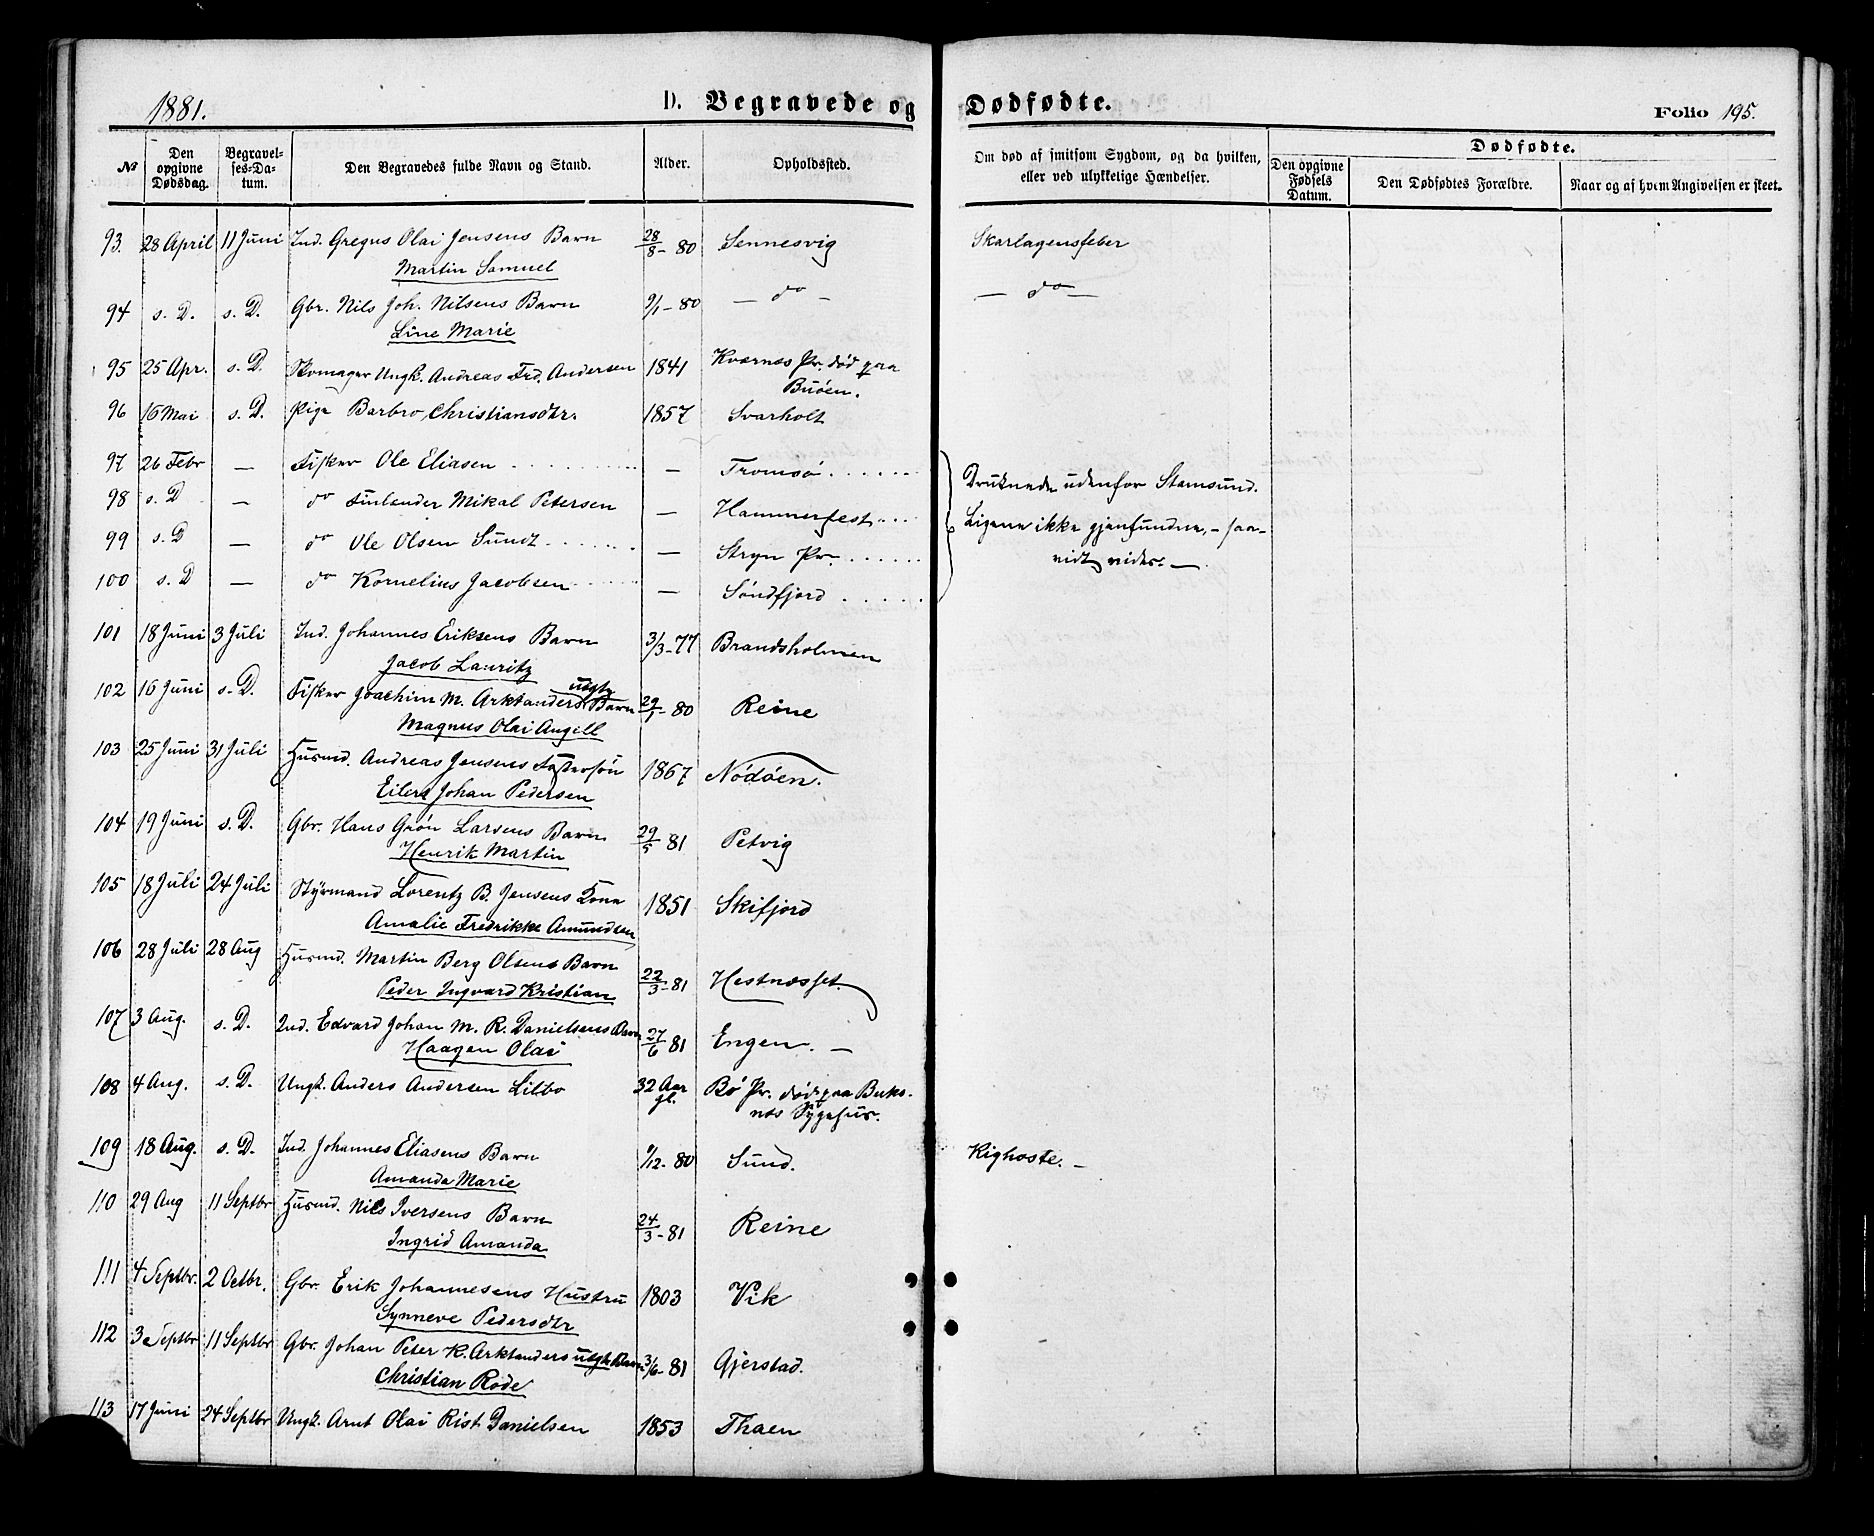 1881.
D. Begravede og Dødfødte.
Folio 195.
No
Den opgivne Dødsdag.
Begravelses-Datum.
Den Begravedes fulde Navn og Stand.
Alder.
Opholdssted.
Om død af smitsom Sygdom, og da hvilken, eller ved ulykkelige Hændelser.
Dødfødte.
Den opgivne Fødsels Datum.
Den Dødfødtes Forældre.
Naar og af hvem Angivelsen er skeet.
93. 28 April 11 Juni Ind. Gregus Olai Jensens Barn 28/8-80 Sennesvig Skarlagensfeber
Martin Samuel
94 s. D. s. D. Gbr. Nils Joh. Nilsens Barn 9/1-80 — do — — do —
Line Marie
95 25 Apr. s. D. Skomager Ungk. Andreas Frd. Andersen 1841 Kværnes Pr. død paa
Buøen.
96 16 Mai s. D. Pige Barbro Christiansdtr. 1857 Svarholt
97 26 Febr — Fisker Ole Eliasen — Tromsø
98 s. D — do Finlander Mikal Petersen — Hammerfest
99 s. D — do Ole Olsen Sundt — Stryn Pr.
100 s. D — do Kornelius Jacobsen — Søndfjord
Druknede udenfor Stamsund.
Ligene ikke gjenfundne, - saa-
vidt vides. —
101 18 Juni 3 Juli Ind. Johannes Eriksens Barn 3/3-77 Brandsholmen
Jacob Lauritz
102 16 Juni s. D. Fisker Joachim M. Arktanders uægte Barn 29/1-80 Reine
Magnus Olai Angell
103 25 Juni 31 Juli Husmd. Andreas Jensens Fostersøn 1867 Nødøen.
Eilert Johan Pedersen
104 19 Juni s. D. Gbr. Hans Grøn Larsens Barn 29/5 81 Petvig
Henrik Martin
105 18 Juli 24 Juli Styrmand Lorentz B. Jensens Kone 1851 Skifjord
Amalie Fredrikke Amundsen
106 28 Juli 28 Aug Husmd. Martin Berg Olsens Barn 22/3-81 Hestnæsset.
Peder Ingvard Kristian
107 3 Aug. s. D. Ind. Edvard Johan M. R. Danielsens Barn 27/6 81 Engen. —
Haagen Olai
108 4 Aug. s. D. Ungk. Anders Andersen Lilbo 32 Aar gl. Bø Pr. død paa Buks-
næs Sygehus.
109 18 Aug. s. D. Ind. Johannes Eliasens Barn 9/12-80 Sund. Kighoste. —
Amanda Marie
110 29 Aug 11 Septbr Husmd. Nils Iversens Barn 24/3-81 Reine
Ingrid Amanda
111 4 Septbr. 2 Octbr. Gbr. Erik Johannesens Hustru 1803 Vik
Synneve Pedersdtr
112 3 Septbr 11 Septbr Gbr. Johan Peter K. Arktanders uægte Barn 3/6-81 Gjerstad.
Christian Rode
113 17 Juni 24 Septbr Ungk. Arnt Olai Rist Danielsen 1853 Thaen